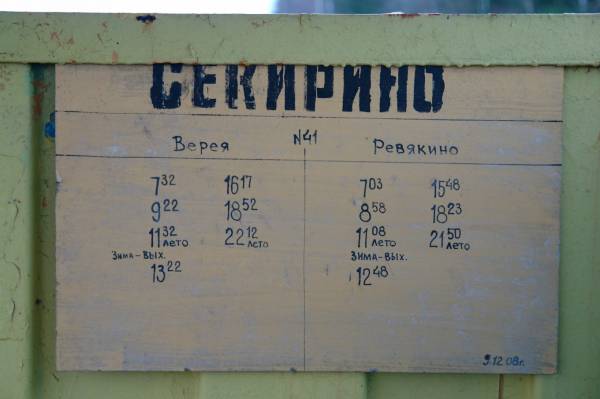 СЕКИРИНО
Верея №41 Ревякино
7 32 16 17 7 03 15 48
9 22 18 52 8 58 18 23
11 32 лето 22 12 лето 11 08 лето 21 50 лето
Зима-вых. Зима-вых.
13 22 12 48
9.12.08г.